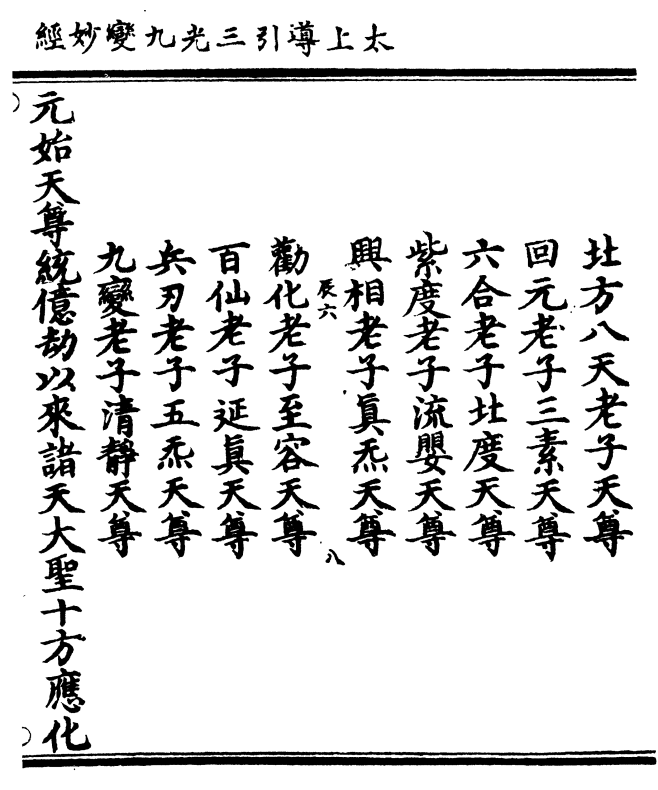 太上導引三光九變妙經
北方八天老子天尊
回元老子三素天尊
六合老子北度天尊
紫度老子流嬰天尊
興相老子眞炁天尊
辰六
八
勸化老子至容天尊
百仙老子延眞天尊
兵刃老子五炁天尊
九變老子清靜天尊
元始天尊統億劫以來諸天大聖十方應化